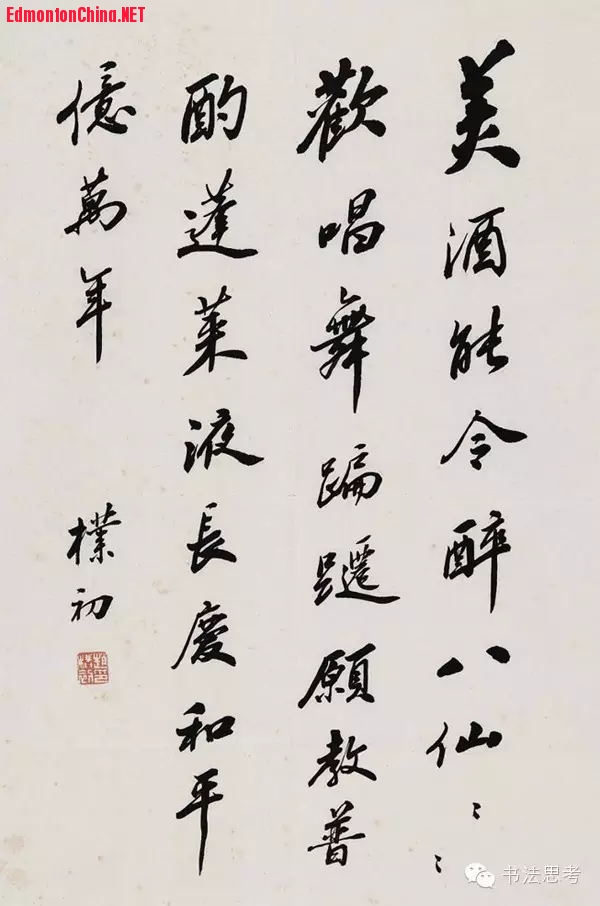 EdmontonChina.NET
美酒能令醉八仙〻〻
歡唱舞蹁躚願教普
酌蓬萊液長慶和平
億萬年
樸初
书法思考